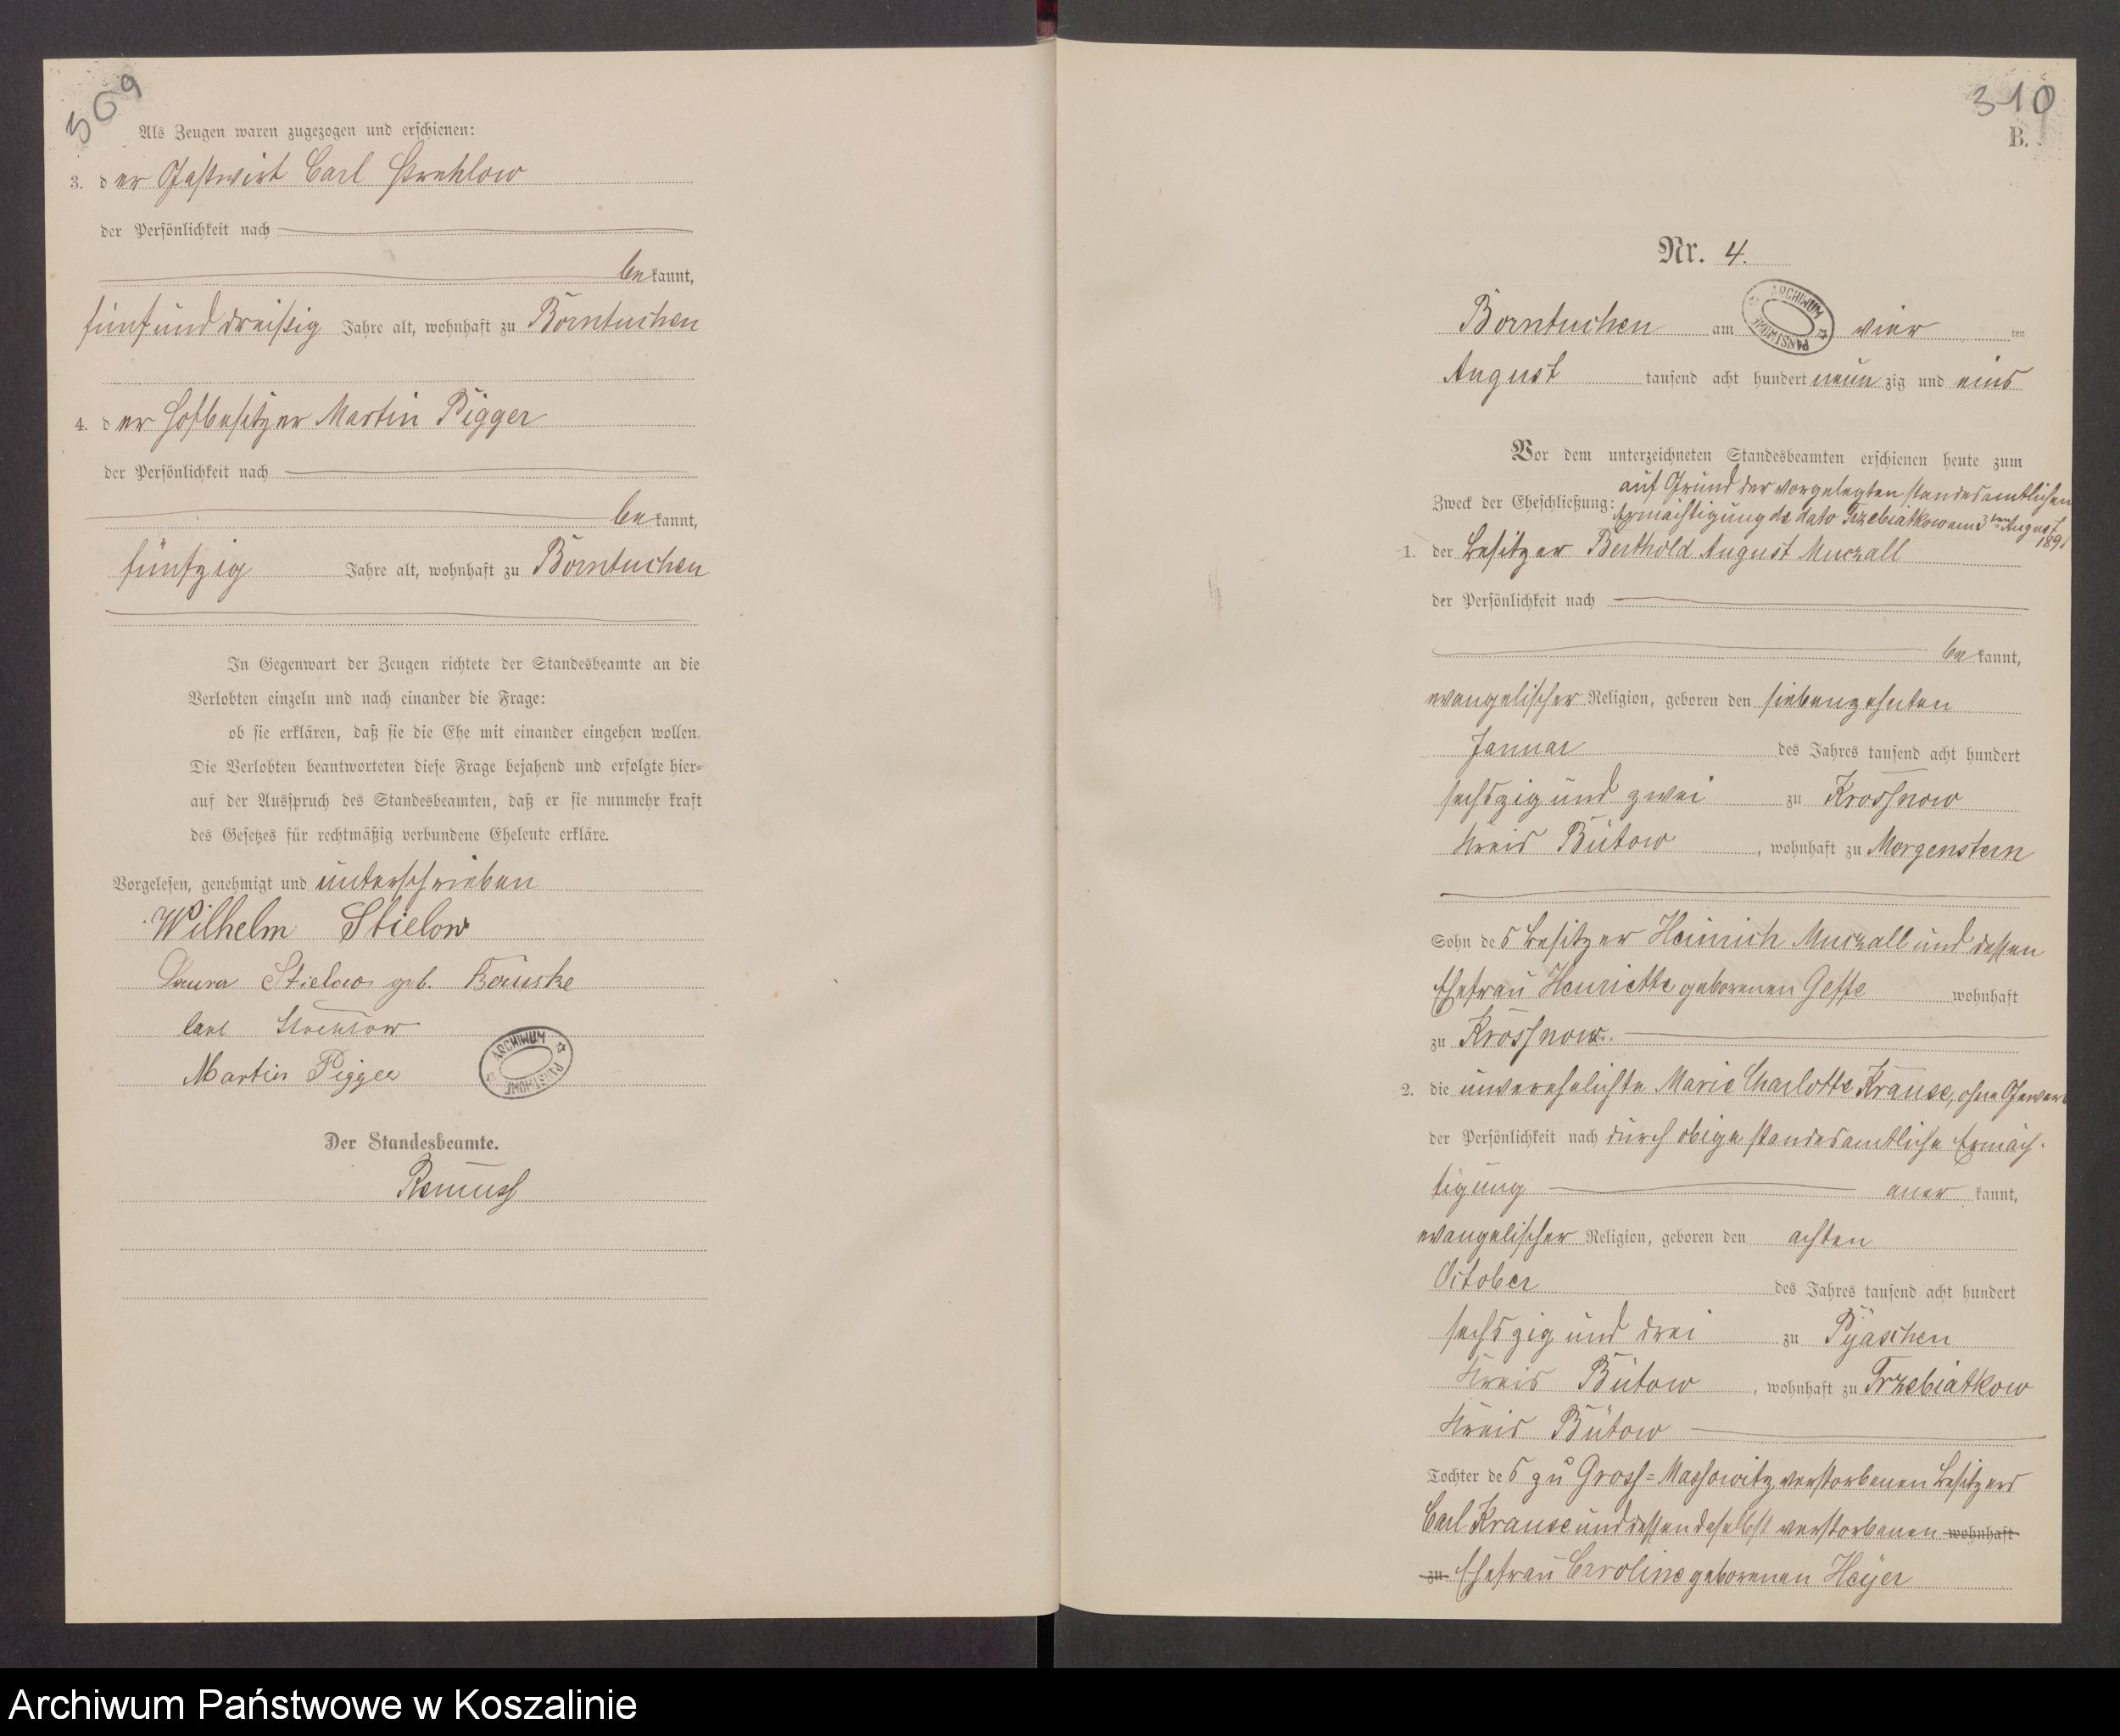 309
Als Zeugen waren zugezogen und erschienen:
3. der Gastwirt Carl Strehlow
der Persönlichkeit nach
bekannt,
fünf und dreißig Jahre alt, wohnhaft zu Borntuchen
4. der Hofbesitzer Martin Pigger
der Persönlichkeit nach
bekannt,
fünfzig Jahre alt, wohnhaft zu Borntuchen
In Gegenwart der Zeugen richtete der Standesbeamte an die
Verlobten einzeln und nach einander die Frage:
ob sie erklären, daß sie die Ehe mit einander eingehen wollen.
Die Verlobten beantworteten diese Frage bejahend und erfolgte hier-
auf der Ausspruch des Standesbeamten, daß er sie nunmehr kraft
des Gesetzes für rechtmäßig verbundene Eheleute erkläre.
Vorgelesen, genehmigt und unterschrieben
Wilhelm Stielow
Laura Stielow geb.
Carl Strehlow
Martin Pigger
ARCHIWUM PAŃSTWOWE
Der Standesbeamte.
310
B.
Nr. 4.
ARCHIWUM PAŃSTWOWE
Borntuchen am vier ten
August tausend acht hundert neunzig und eins
Vor dem unterzeichneten Standesbeamten erschienen heute zum
auf Grund der vorgelegten standesamtlichen
Zweck der Eheschließung: Ermächtigung de dato Trzebiatkow am 3ten August
1891
1. der Besitzer Berthold August Muczall
der Persönlichkeit nach
bekannt,
evangelischer Religion, geboren den siebenzehnten
Januar des Jahres tausend acht hundert
sechszig und zwei zu Krossnow
Kreis Bütow, wohnhaft zu Morgenstern
Sohn des Besitzer Heinrich Muczall und dessen
Ehefrau Henriette geborenen Geske wohnhaft
zu Krossnow.
2. die unverehelichte Marie Charlotte Krause, ohne Gewerb
der Persönlichkeit nach durch obige standesamtliche Ermäch-
tigung anerkannt,
evangelischer Religion, geboren den achten
October des Jahres tausend acht hundert
sechszig und drei zu Pyaschen
Kreis Bütow, wohnhaft zu Trzebiatkow
Kreis Bütow
Tochter des zu Gross-Massowitz verstorbenen Besitzers
Carl Krause und dessen daselbst verstorbenen wohnhaft
zu Ehefrau Caroline geborenen Heyer
Archiwum Państwowe w Koszalinie